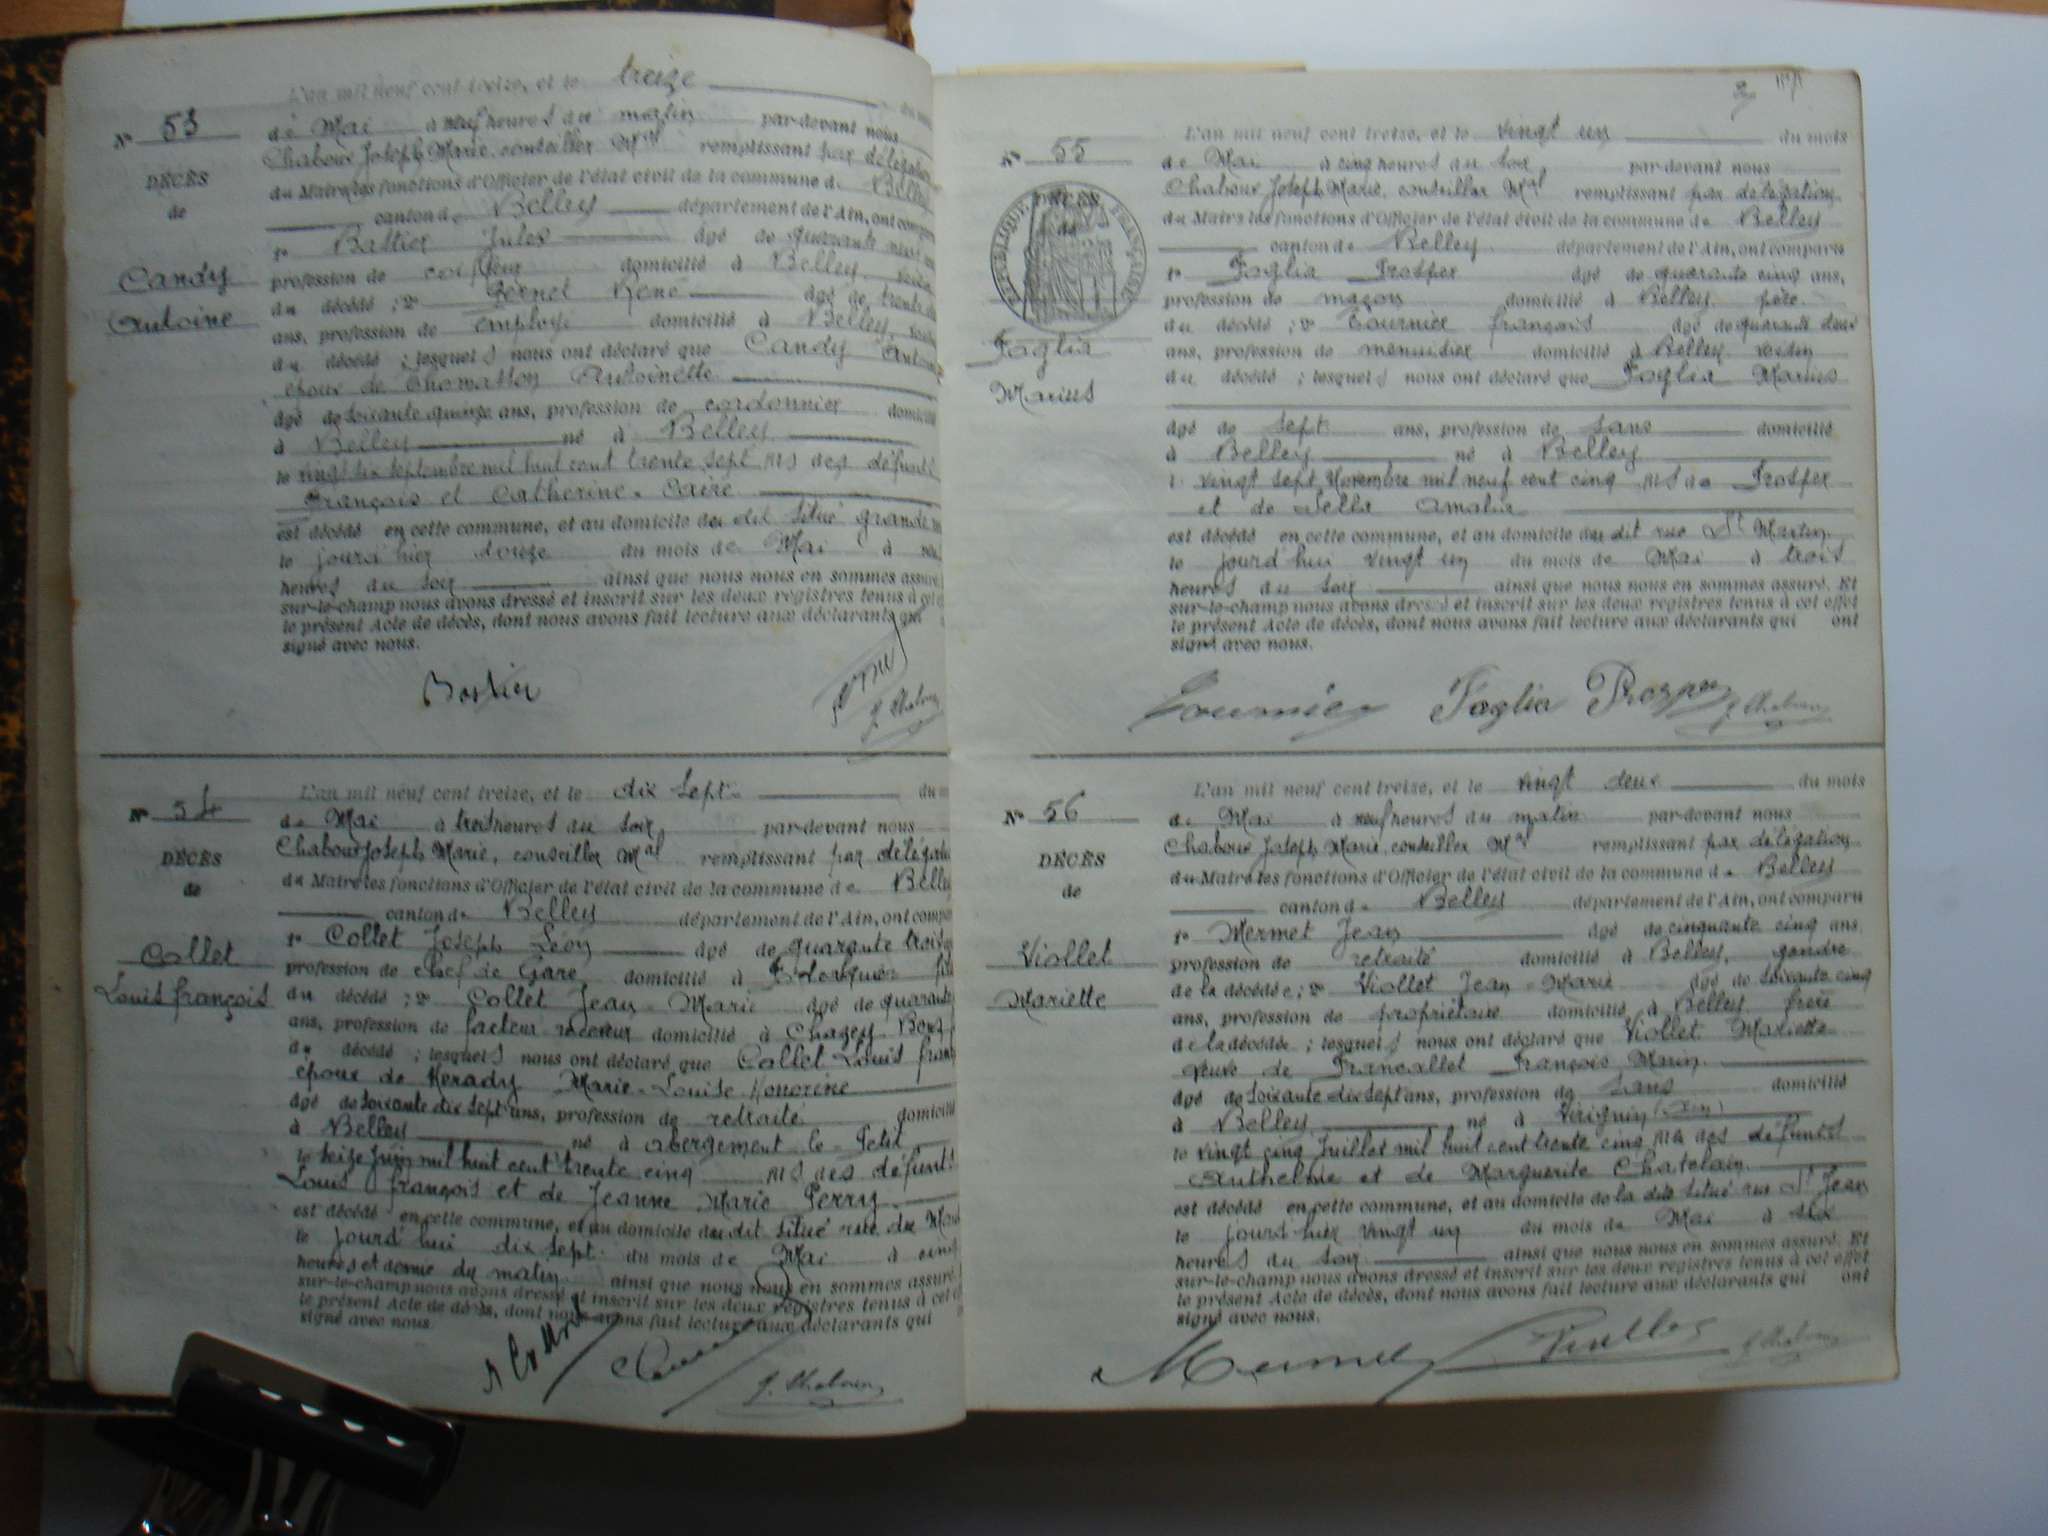 L'an mil neuf cent treize, et le treize
N° 53
de Mai à neuf heures du matin par-devant nous
Chaboux Joseph Marie, conseiller Mal remplissant par délégation
DÉCÈS
du Maire les fonctions d'Officier de l'état civil de la commune de Belley
de
canton de Belley département de l'Ain, ont comparu
1° Battier Jules âgé de quarante neuf
Candy
profession de coiffeur domicilié à Belley, voisin
Antoine
du décédé ; 2° Pernet René âgé de trente
ans, profession de employé domicilié à Belley,
du décédé ; lesquels nous ont déclaré que Candy Antoine
époux de Thomasson Antoinette
âgé de soixante quinze ans, profession de cordonnier domicilié
à Belley né à Belley
le vingt six septembre mil huit cent trente sept fils des défunts
François et Catherine Caire
est décédé en cette commune, et au domicile du dit situé grande
le jour d'hier douze du mois de Mai à
heures du soir ainsi que nous nous en sommes assuré.
sur-le-champ nous avons dressé et inscrit sur les deux registres tenus à cet
le présent Acte de décès, dont nous avons fait lecture aux déclarants qui
signé avec nous.
L'an mil neuf cent treize, et le dix sept du
N° 54
de Mai à trois heures du soir, par-devant nous
Chaboux Joseph Marie, conseiller Mal remplissant par délégation
DÉCÈS
du Maire les fonctions d'Officier de l'état civil de la commune de Belley
de
canton de Belley département de l'Ain, ont comparu
1° Collet Joseph Léon âgé de quarante trois
Collet
profession de chef de Gare domicilié à fils
Louis françois
du décédé ; 2° Collet Jean-Marie âgé de quarante
ans, profession de facteur receveur domicilié à Chazey-Bons
du décédé ; lesquels nous ont déclaré que Collet Louis franç
époux de Merady Marie-Louise Honorine
âgé de soixante dix sept ans, profession de retraité domicilié
à Belley né à abergement-le-Petit
le seize juin mil huit cent trente cinq fils des défunts
Louis françois et de Jeanne Marie Perry
est décédé en cette commune, et au domicile du dit situé rue du
le jour d'hui dix sept du mois de Mai à cinq
heures et demie du matin ainsi que nous nous en sommes assuré.
sur-le-champ nous avons dressé et inscrit sur les deux registres tenus à cet
le présent Acte de décès, dont nous avons fait lecture aux déclarants qui
signé avec nous.
J. Chaboux
L'an mil neuf cent treize, et le vingt un du mois
N° 55
de Mai à cinq heures du soir par-devant nous
Chaboux Joseph Marie, conseiller Mal remplissant par délégation
DÉCÈS
RÉPUBLIQUE FRANÇAISE
du Maire les fonctions d'Officier de l'état civil de la commune de Belley
de
canton de Belley département de l'Ain, ont comparu
1° Foglia Prosper âgé de quarante cinq ans,
profession de maçon domicilié à Belley père
du décédé ; 2° Tournier françois âgé de quarante deux
Foglia
ans, profession de menuisier domicilié à Belley voisin
Marius
du décédé ; lesquels nous ont déclaré que Foglia Marius
âgé de sept ans, profession de sans domicilié
à Belley né à Belley
le vingt sept Novembre mil neuf cent cinq fils de Prosper
et de Sella Amalia
est décédé en cette commune, et au domicile du dit rue St Martin
le jour d'hui vingt un du mois de Mai à trois
heures du soir ainsi que nous nous en sommes assuré. Et
sur-le-champ nous avons dressé et inscrit sur les deux registres tenus à cet effet
le présent Acte de décès, dont nous avons fait lecture aux déclarants qui ont
signé avec nous.
Tournier Foglia Prosper J. Chaboux
L'an mil neuf cent treize, et le vingt deux du mois
N° 56
de Mai à neuf heures du matin par-devant nous
Chaboux Joseph Marie, conseiller Mal remplissant par délégation
DÉCÈS
du Maire les fonctions d'Officier de l'état civil de la commune de Belley
de
canton de Belley département de l'Ain, ont comparu
1° Mermet Jean âgé de cinquante cinq ans
Viollet
profession de retraité domicilié à Belley, gendre
Mariette
de la décédée ; 2° Viollet Jean-Marie âgé de soixante cinq
ans, profession de propriétaire domicilié à Belley frère
de la décédée ; lesquels nous ont déclaré que Viollet Mariette
veuve de Francallet François Marin
âgé de soixante dix sept ans, profession de sans domicilié
à Belley né à Virignin (Ain)
le vingt cinq Juillet mil huit cent trente cinq fille des défunts
Anthelme et de Marguerite Chatelain
est décédé en cette commune, et au domicile de la dite situé rue St Jean
le jour d'hier vingt un du mois de Mai à six
heures du soir ainsi que nous nous en sommes assuré. Et
sur-le-champ nous avons dressé et inscrit sur les deux registres tenus à cet effet
le présent Acte de décès, dont nous avons fait lecture aux déclarants qui ont
signé avec nous.
Mermet Viollet J. Chaboux